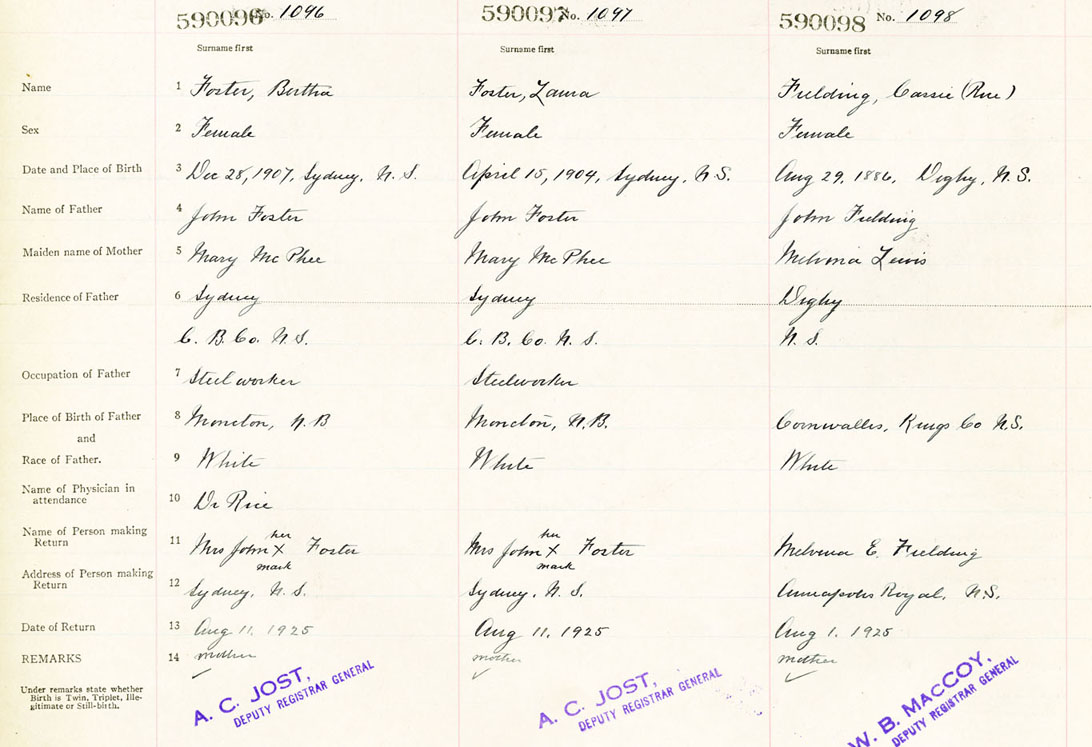 590096 No. 1096 590097 No. 1097 590098 No. 1098
Surname first Surname first Surname first
Name 1 Foster, Bertha Foster, Laura Fielding, Cassie (Rue)
Sex 2 Female Female Female
Date and Place of Birth 3 Dec 28, 1907, Sydney, N. S. April 15, 1904, Sydney, N.S. Aug 29, 1886, Digby, N.S.
Name of Father 4 John Foster John Foster John Fielding
Maiden name of Mother 5 Mary McPhee Mary McPhee Melvina Lewis
Residence of Father 6 Sydney Sydney Digby
C. B. Co. N. S. C. B. Co. N. S. N. S.
Occupation of Father 7 Steelworker Steelworker
Place of Birth of Father 8 Moncton, N.B Moncton, N.B. Cornwallis, Kings Co N.S.
and
Race of Father. 9 White White White
Name of Physician in
attendance 10 Dr Rice
Name of Person making
Return 11 Mrs John her X mark Foster Mrs John her X mark Foster Melvina E. Fielding
Address of Person making
Return 12 Sydney, N. S. Sydney, N. S. Annapolis Royal, N.S.
Date of Return 13 Aug 11, 1925 Aug 11, 1925 Aug 1, 1925
REMARKS 14 mother mother mother
Under remarks state whether
Birth is Twin, Triplet, Ille-
gitimate or Still-birth.
A. C. JOST,
DEPUTY REGISTRAR GENERAL
A. C. JOST,
DEPUTY REGISTRAR GENERAL
W. B. MacCOY,
DEPUTY REGISTRAR GENERAL